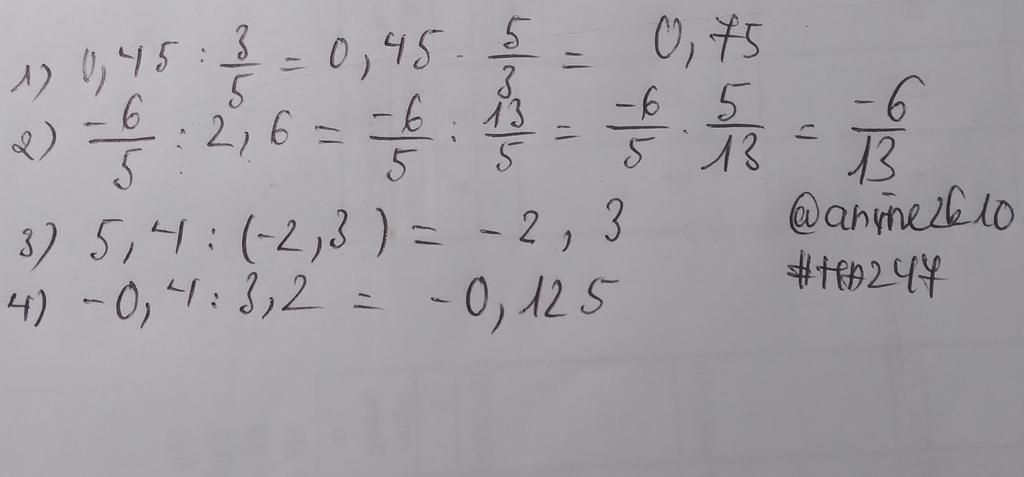 1) 0,45 : 3/5 = 0,45 · 5/3 = 0,75
2) -6/5 : 2,6 = -6/5 : 13/5 = -6/5 · 5/13 = -6/13
3) 5,4 : (-2,3) = -2,3
4) -0,4 : 3,2 = -0,125
@anime2k10